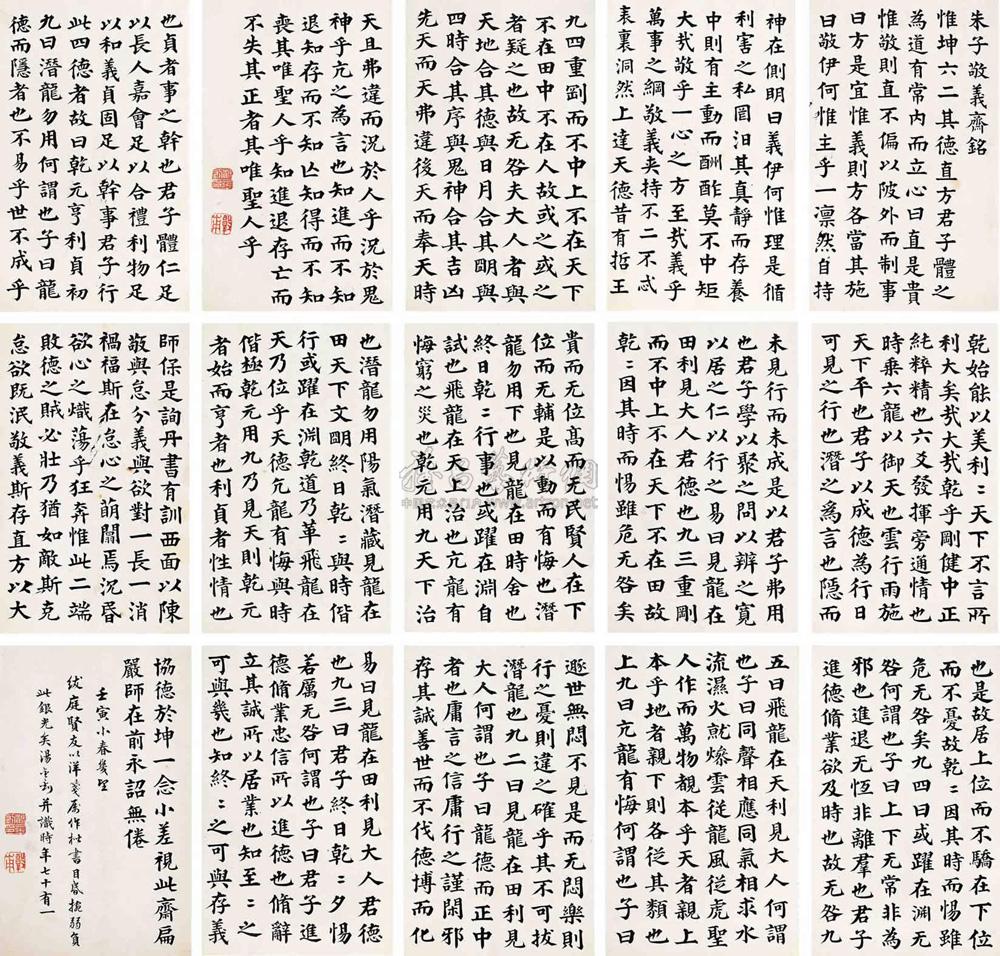 朱子敬義齋銘
惟坤六二其德直方君子體之
為道有常内而立心曰直是貴
惟敬則直不偏以陂外而制事
曰方是宜惟義則方各當其施
曰敬伊何惟主乎一凛然自持
神在側明曰義伊何惟理是循
利害之私罔汩其真靜而存養
中則有主動而酬酢莫不中矩
大㢤敬乎一心之方至㢤義乎
萬事之綱敬義夹持不二不忒
表裏洞然上達天德昔有哲王
九四重剛而不中上不在天下
不在田中不在人故或之或之
者疑之也故无咎夫大人者與
天地合其德與日月合其眀與
四時合其序與鬼神合其吉凶
先天而天弗違後天而奉天時
天且弗違而況於人乎況於鬼
神乎亢之為言也知進而不知
退知存而不知亾知得而不知
喪其唯聖人乎知進退存亡而
不失其正者其唯聖人乎
也貞者事之幹也君子體仁足
以長人嘉會足以合禮利物足
以和義貞固足以幹事君子行
此四德者故曰乾元亨利貞初
九曰潛龍勿用何謂也子曰龍
德而隱者也不易乎世不成乎
乾始能以美利二天下不言所
利大矣㢤大㢤乾乎剛健中正
純粹精也六爻發揮旁通情也
時乘六龍以御天也雲行雨施
天下平也君子以成德為行日
可見之行也潛之為言也隱而
未見行而未成是以君子弗用
也君子學以聚之問以辨之寬
以居之仁以行之易曰見龍在
田利見大人君德也九三重剛
而不中上不在天下不在田故
乾二因其時而惕雖危无咎矣
貴而无位髙而无民賢人在下
位而无輔是以動而有悔也潛
龍勿用下也見龍在田時舍也
終日乾二行事也或躍在淵自
試也飛龍在天上治也亢龍有
悔窮之災也乾元用九天下治
也潛龍勿用陽氣潛藏見龍在
田天下文眀終日乾二與時偕
行或躍在淵乾道乃革飛龍在
天乃位乎天德亢龍有悔與時
偕極乾元用九乃見天則乾元
者始而亨者也利貞者性情也
師保是詢丹書有訓西面以陳
敬與怠分義與欲對一長一消
禍福斯在怠心之萌闒焉沉昏
欲心之熾蕩乎狂奔惟此二端
敗德之賊必壯乃猶如敵斯克
怠欲既泯敬義斯存直方以大
也是故居上位而不驕在下位
而不憂故乾二因其時而惕雖
危无咎矣九四曰或躍在淵无
咎何謂也子曰上下无常非為
邪也進退无恆非離羣也君子
進德脩業欲及時也故无咎九
五曰飛龍在天利見大人何謂
也子曰同聲相應同氣相求水
流濕火就燥雲從龍風從虎聖
人作而萬物覩本乎天者親上
本乎地者親下則各從其類也
上九曰亢龍有悔何謂也子曰
遯世無悶不見是而无悶樂則
行之憂則違之確乎其不可拔
潛龍也九二曰見龍在田利見
大人何謂也子曰龍德而正中
者也庸言之信庸行之謹閑邪
存其誠善世而不伐德博而化
易曰見龍在田利見大人君德
也九三曰君子終日乾二夕惕
若厲无咎何謂也子曰君子進
德脩業忠信所以進德也脩辭
立其誠所以居業也知至二之
可與㡬也知終二之可與存義
協德於坤一念小差視此齋扁
嚴師在前永詔無倦
壬寅小春幾望
紱庭賢友以洋箋屬作楷書目昏捥弱負
此銀光矣湯金釗并識時年七十有一